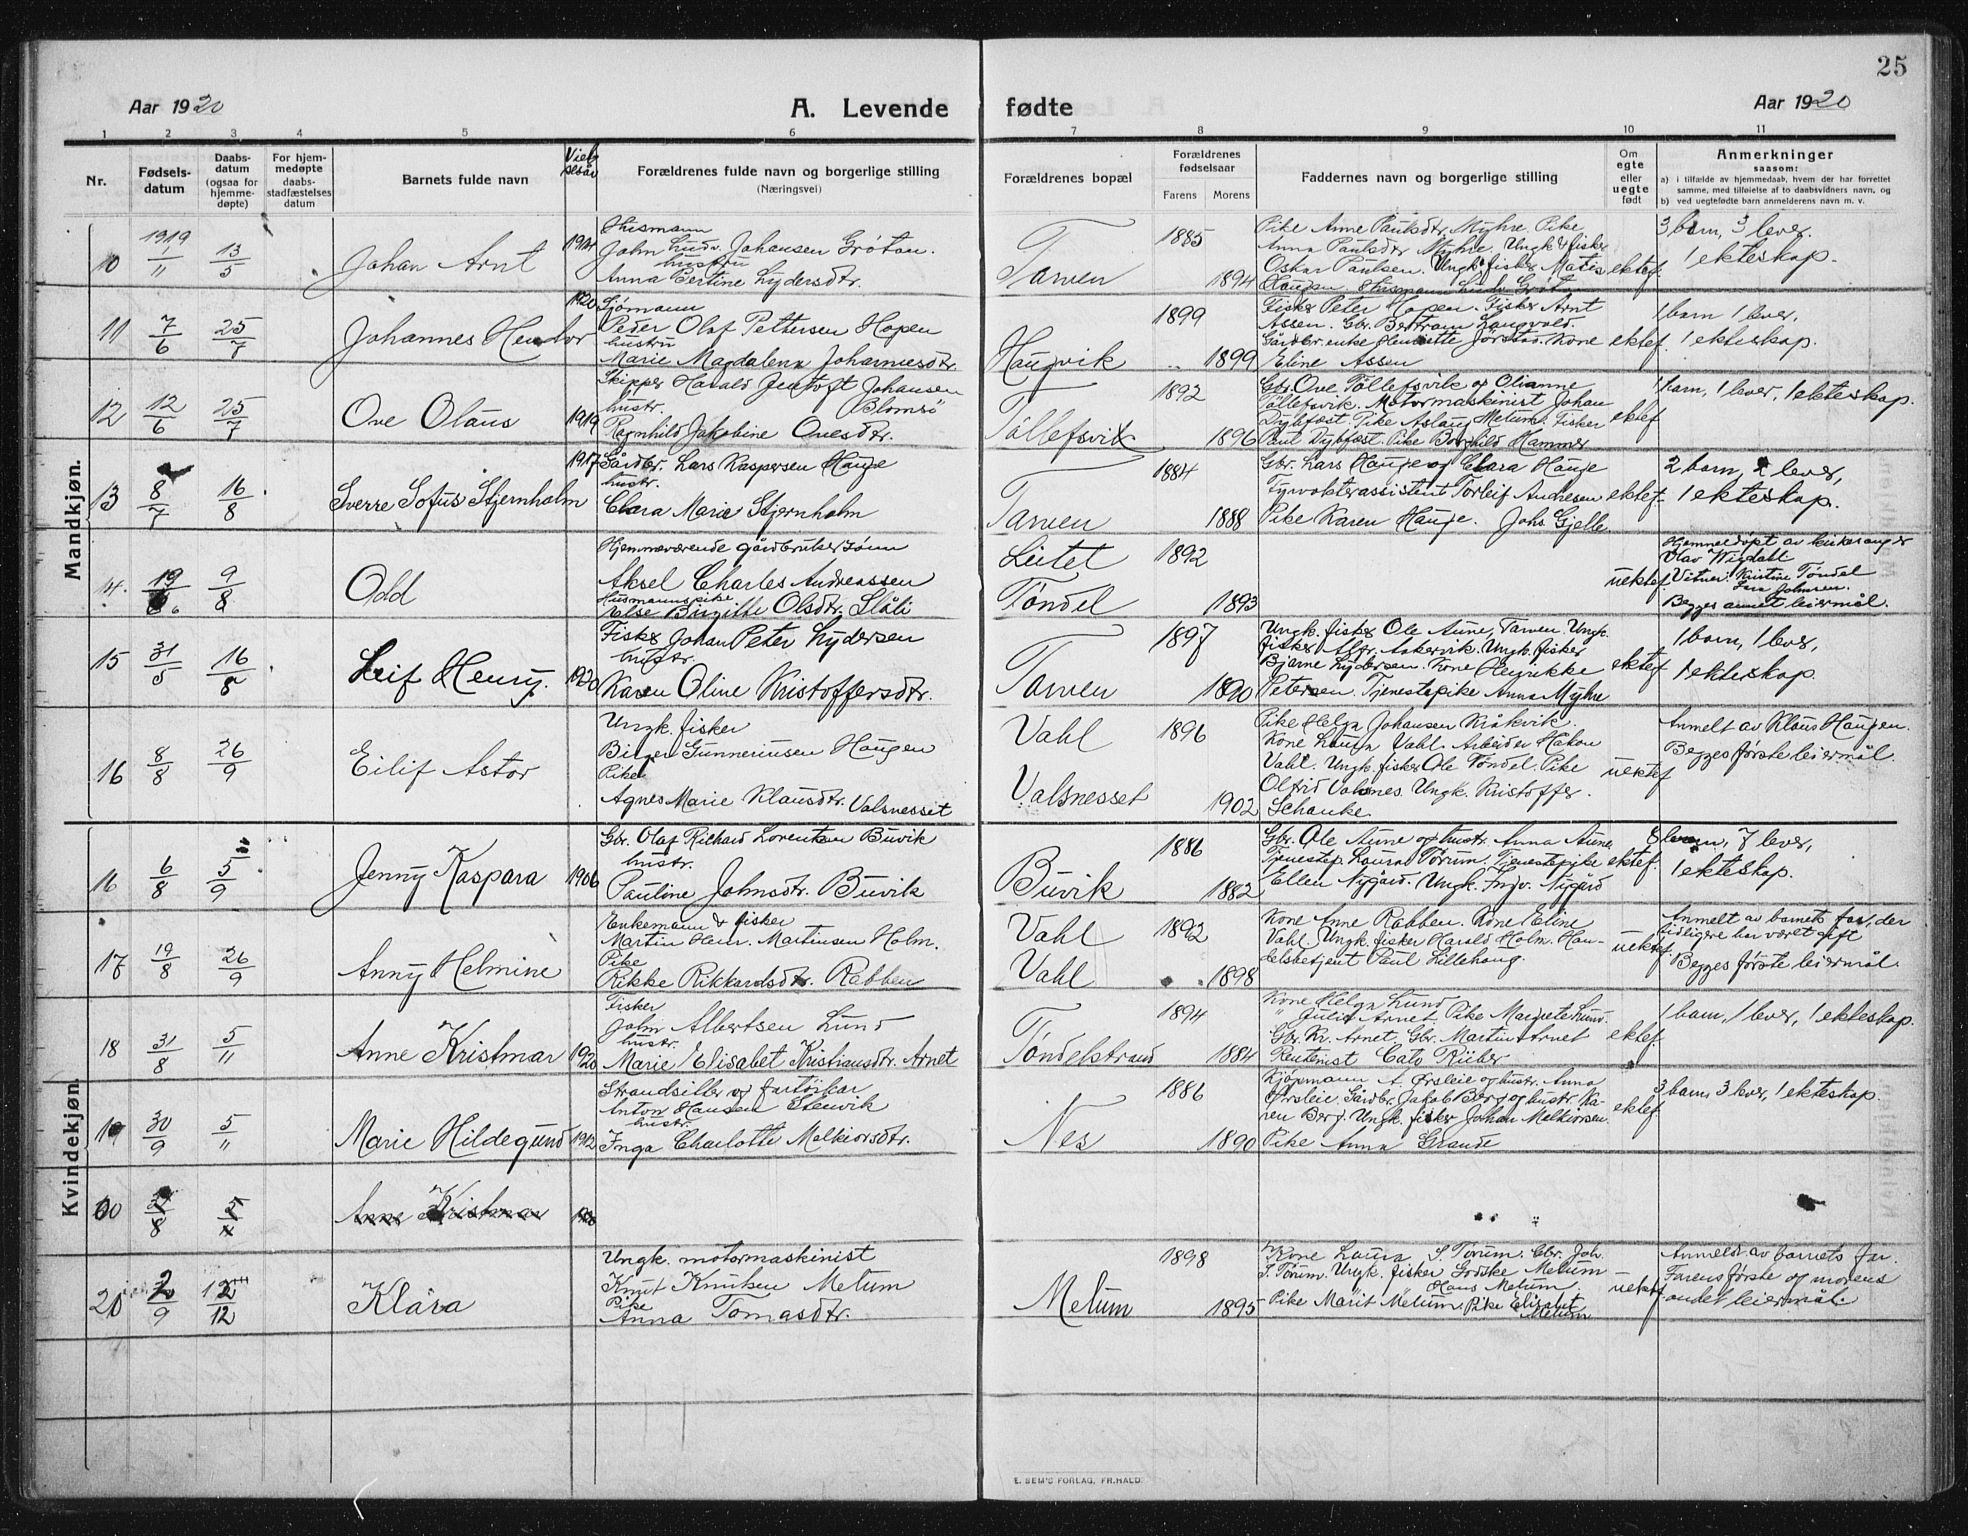 25
Aar 1920
A. Levende fødte
Aar 1920
1 2 3 4 5 6 7 8 9 10 11
Nr.
Fødsels-
datum
Daabs-
datum
(ogsaa for
hjemme-
døpte)
For hjem-
medøpte
daabs-
stadfæstelses
datum
Barnets fulde navn
Viels
Forældrenes fulde navn og borgerlige stilling
(Næringsvei)
Forældrenes bopæl
Forældrenes
fødselsaar
Farens Morens
Faddernes navn og borgerlige stilling
Om
egte
eller
uegte
født
Anmerkninger
saasom:
a) i tilfælde av hjemmedaab, hvem der har forrettet
samme, med tilføielse af to daabsvidners navn, og
b) ved uegtefødte barn anmelderens navn m. v.
Mandkjøn.
10 1919 11 13/5 Johan Arnt 1914
Husmann
John Ludv. Johansen Grøtan.
hustru
Anna Bertine Lydersdtr.
Tarven 1885 1894
Pike Anne Paulsdtr Myhre. Pike
Anna Paulsdtr Myhre. Ungk. fisker
Oskar Paulsen. Ungk. fisker
ektef.
3 barn, 3 lever.
1 ekteskap.
11 7/6 25/7 Johannes 1920
Sjømann
Peder Olaf Pettersen Hopen
hustru
Marie Magdalena Johannesdtr.
Haugvik 1899 1899
Fisker Peter Hopen. Fisker Arnt
Assen. Gbr. Bertram Langvold.
Gårdbr. enke Henriette Jørstad. Kone
Eline Assen
ektef.
1 barn 1 lever,
1 ekteskap.
12 12/6 25/7 Ove Olaus 1919
Skipper Harald Jentoft Johansen
Blomsø
hustr.
Ragnhild Jakobine Ovesdtr.
Tøllefsvik 1892 1896
Gbr. Ove Tøllefsvik og Olianne
Tøllefsvik. Motormaskinist Johan
Dybfest. Pike Aslaug Metum. Fisker
Paul Dybfest. Pike Borghild Hammer
ektef
1 barn, 1 lever, 1 ekteskap.
13 8/7 16/8 Sverre Sofus Stjernholm 1917
Gårdbr. Lars Kaspersen Hauge
hustr.
Clara Marie Stjernholm
Tarven 1884 1888
Gbr. Lars Hauge og Clara Hauge
Fyrvokterassistent Torleif Andresen
Pike Karen Hauge. Johs. Gjelle.
ektef.
2 barn, lever,
1 ekteskap.
14. 19 9/8 Odd
Hjemmeværende gårdbrukersønn
Aksel Charles Andreassen
Husmannspike
Else Birgitte Olsdtr.
Leitet
Tøndel 1892 1893
uektef.
Hjemmedøpt av kirkesanger
Olav Wigdahl
Vitner: Kristine Tøndel
Johnsen.
Begges annet leiermål.
15 31/5 16/8 Leif Henry. 1920
Fisker Johan Peter Lydersen
hustr.
Karen Oline Kristoffersdtr.
Tarven 1897 1890
Ungk. fisker Ole Aune, Tarven. Ungk.
fisker Alfr. Askervik. Ungk. fisker
Bjarne Lydersen. Kone Henrikke
Petersen. Tjenestepike Anna Myhre
ektef
1 barn, 1 lever,
1 ekteskap
16 8/8 26/9 Eilif Astor
Ungk. fisker
Birger Gunneriusen Haugen
Pike
Agnes Marie Klausdtr. Valsnesset
Vahl
Valsnesset 1896 1902
Pike Helga Johansen Kråkvik.
Kone Laura Vahl. Arbeider Håkon
Vahl. Ungk. fisker Ole Tøndel. Pike
Olfrid Valsnes. Ungk. Kristoffer
Schanke
uektef
Anmelt av Klaus Haugen.
Begges første leiermål.
Kvindekjøn.
16 6/8 5/9 Jenny Kaspara 1906
Gbr. Olaf Richard Lorentsen Buvik
hustr.
Pauline Johnsdtr. Buvik
Buvik 1886 1882
Gbr. Ole Aune og hustr. Anna Aune
Tjenestep. Laura Tørum. Tjenestepike
Ellen Nygård. Ungk. Ingv. Nygård
ektef.
8 barn, 7 lever,
1 ekteskap.
17 19/8 26/9 Anny Helmine
Enkemann & fisker
Martin Martinsen Holm.
Pike
Rikke Rikkardsdtr. Rabben
Vahl
Vahl 1892 1898
Kone Anne Rabben. Kone Eline
Vahl. Ungk. fisker Harald Holm. Han-
delsbetjent Paul Lillehaug.
uektef.
Anmelt av barnets far, der
tidligere har været gift
Begges første leiermål.
18 31/8 5/11 Anne Kristmar 1920
Fisker
John Albertsen Lund
hustr.
Marie Elisabet Kristiansdtr. Arnet
Tøndelstrand 1894 1884
Kone Helga Lund
" Julie Arnet Pike Margrete Lund.
Gbr. Kr. Arnet. Gbr. Martin Arnet
Rentenist Cato Riiber
ektef.
1 barn, 1 lever, 1 ekteskap.
19 30/9 5/11 Marie Hildegund 1912
Strandsitter og
Anton Hansen Stenvik
hustr.
Inga Charlotte Melkiorsdtr.
Nes 1886 1890
Kjøpmann A. Ørsleie og hustr. Anna
Ørsleie. Gårdbr. Jakob Berg og hustr. Ka-
ren Berg. Ungk. fisker Johan Melkiorsen
Pike Anna Grande
ektef
3 barn 3 lever, 1 ekteskap.
Anne Kristmar
20 2/9 12/12 Klara
Ungk. motormaskinist
Knut Knutsen Metum
Pike
Anna Tomasdtr.
Melum 1898 1895
Kone Laura S. Tørum. Gbr. Joh.
S. Tørum. Ungk. fisker Godske Metum
Hans Metum
Pike Marit Metum. Pike Elisabet
Metum
uektef
Anmeldt av barnets far.
Farens første og morens
andet leiermål.
E. SEM'S FORLAG, FR.HALD.